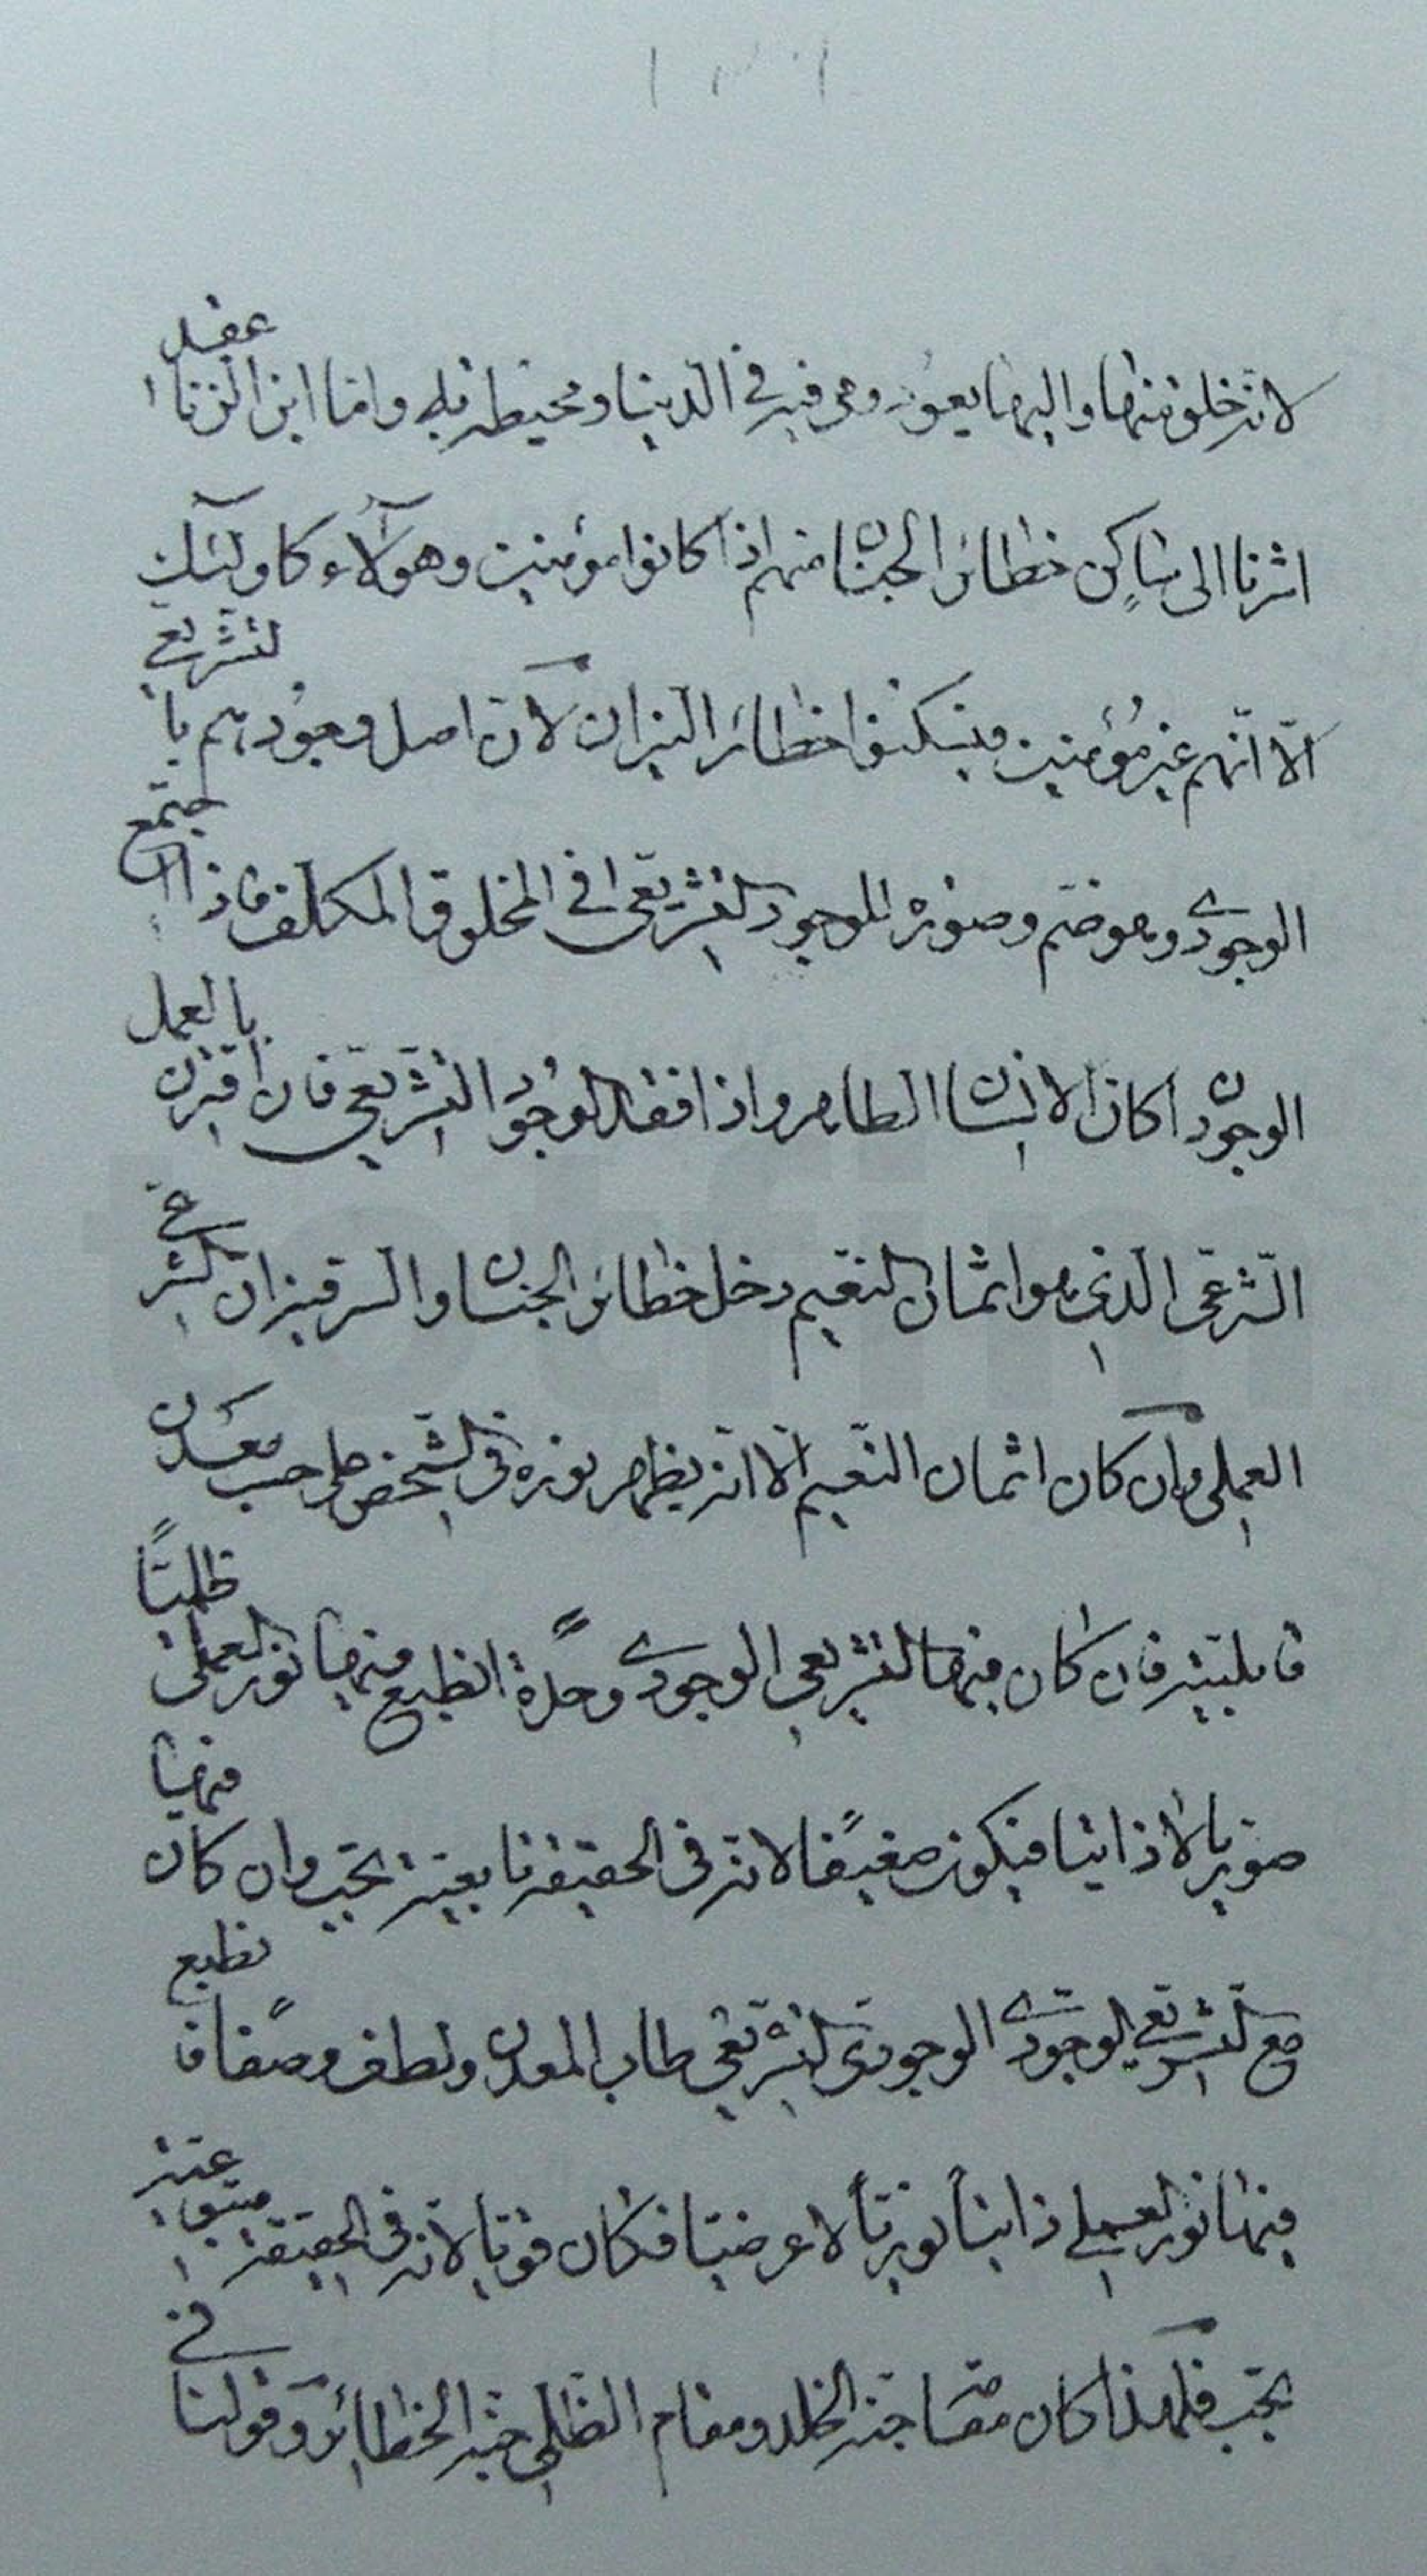 لانه خلق منها واليها يعود وهي فيه في الدنيا ومحيطة به واما ابن الزنا فقد
اشرنا الى ساكن خطائر الجنان منهم اذا كانوا مؤمنين وهؤلاء كاولئك
الّا انّهم غير مؤمنين فيسكنوا خطائر النيران لانّ اصل وجودهم با لتشريع
الوجودي وهو ضم وصورة الموجود لتشريعي في المخلوق المكلف فاذا اجتمع
الوجودان كان الانسان الطاهر واذا فقد الوجود التشريعي فان اقترن بالعمل
الشرعي الذي هو اثمان النعيم دخل خطائر الجنان والسر فيه ان الشرعي
العملي وان كان اثمان النعيم الّا انه يظهر نوره في الشخص على حسب معدن
قابليته فان كان فيها التشريعي الوجودي وحده انطبع فيها نور العملي ظليّاً
صوريا لا ذاتيا فيكون ضعيفا لانه في الحقيقة تابعية تجب وان كان فيها
مع التشريعي الوجودي الوجودي التشريعي طاب المعدن ولطف وصفا فانطبع
فيها نور العملي ذاتياً نورياً لا عرضيا فكان قويا لانه في الحقيقة متبوعية
تجب فلهذا كان مقامنا جنة الخلد ومقام الظلي جنة الخطائر وقولنا في